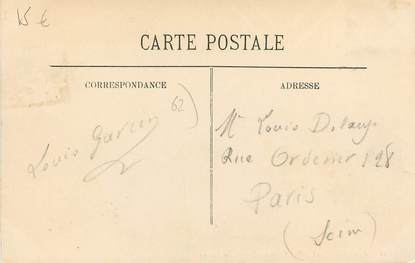 15 €
CARTE POSTALE
CORRESPONDANCE
ADRESSE
62
Louis Garcin
Mr Louis
Rue Ordener 128
Paris
(Seine)